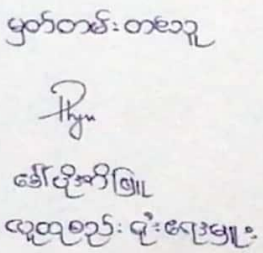 မှတ်တမ်းတင်သူ
Phyu
ဒေါ်ပိုးအိဖြူ
လူထုစည်းရုံးရေးမှူး